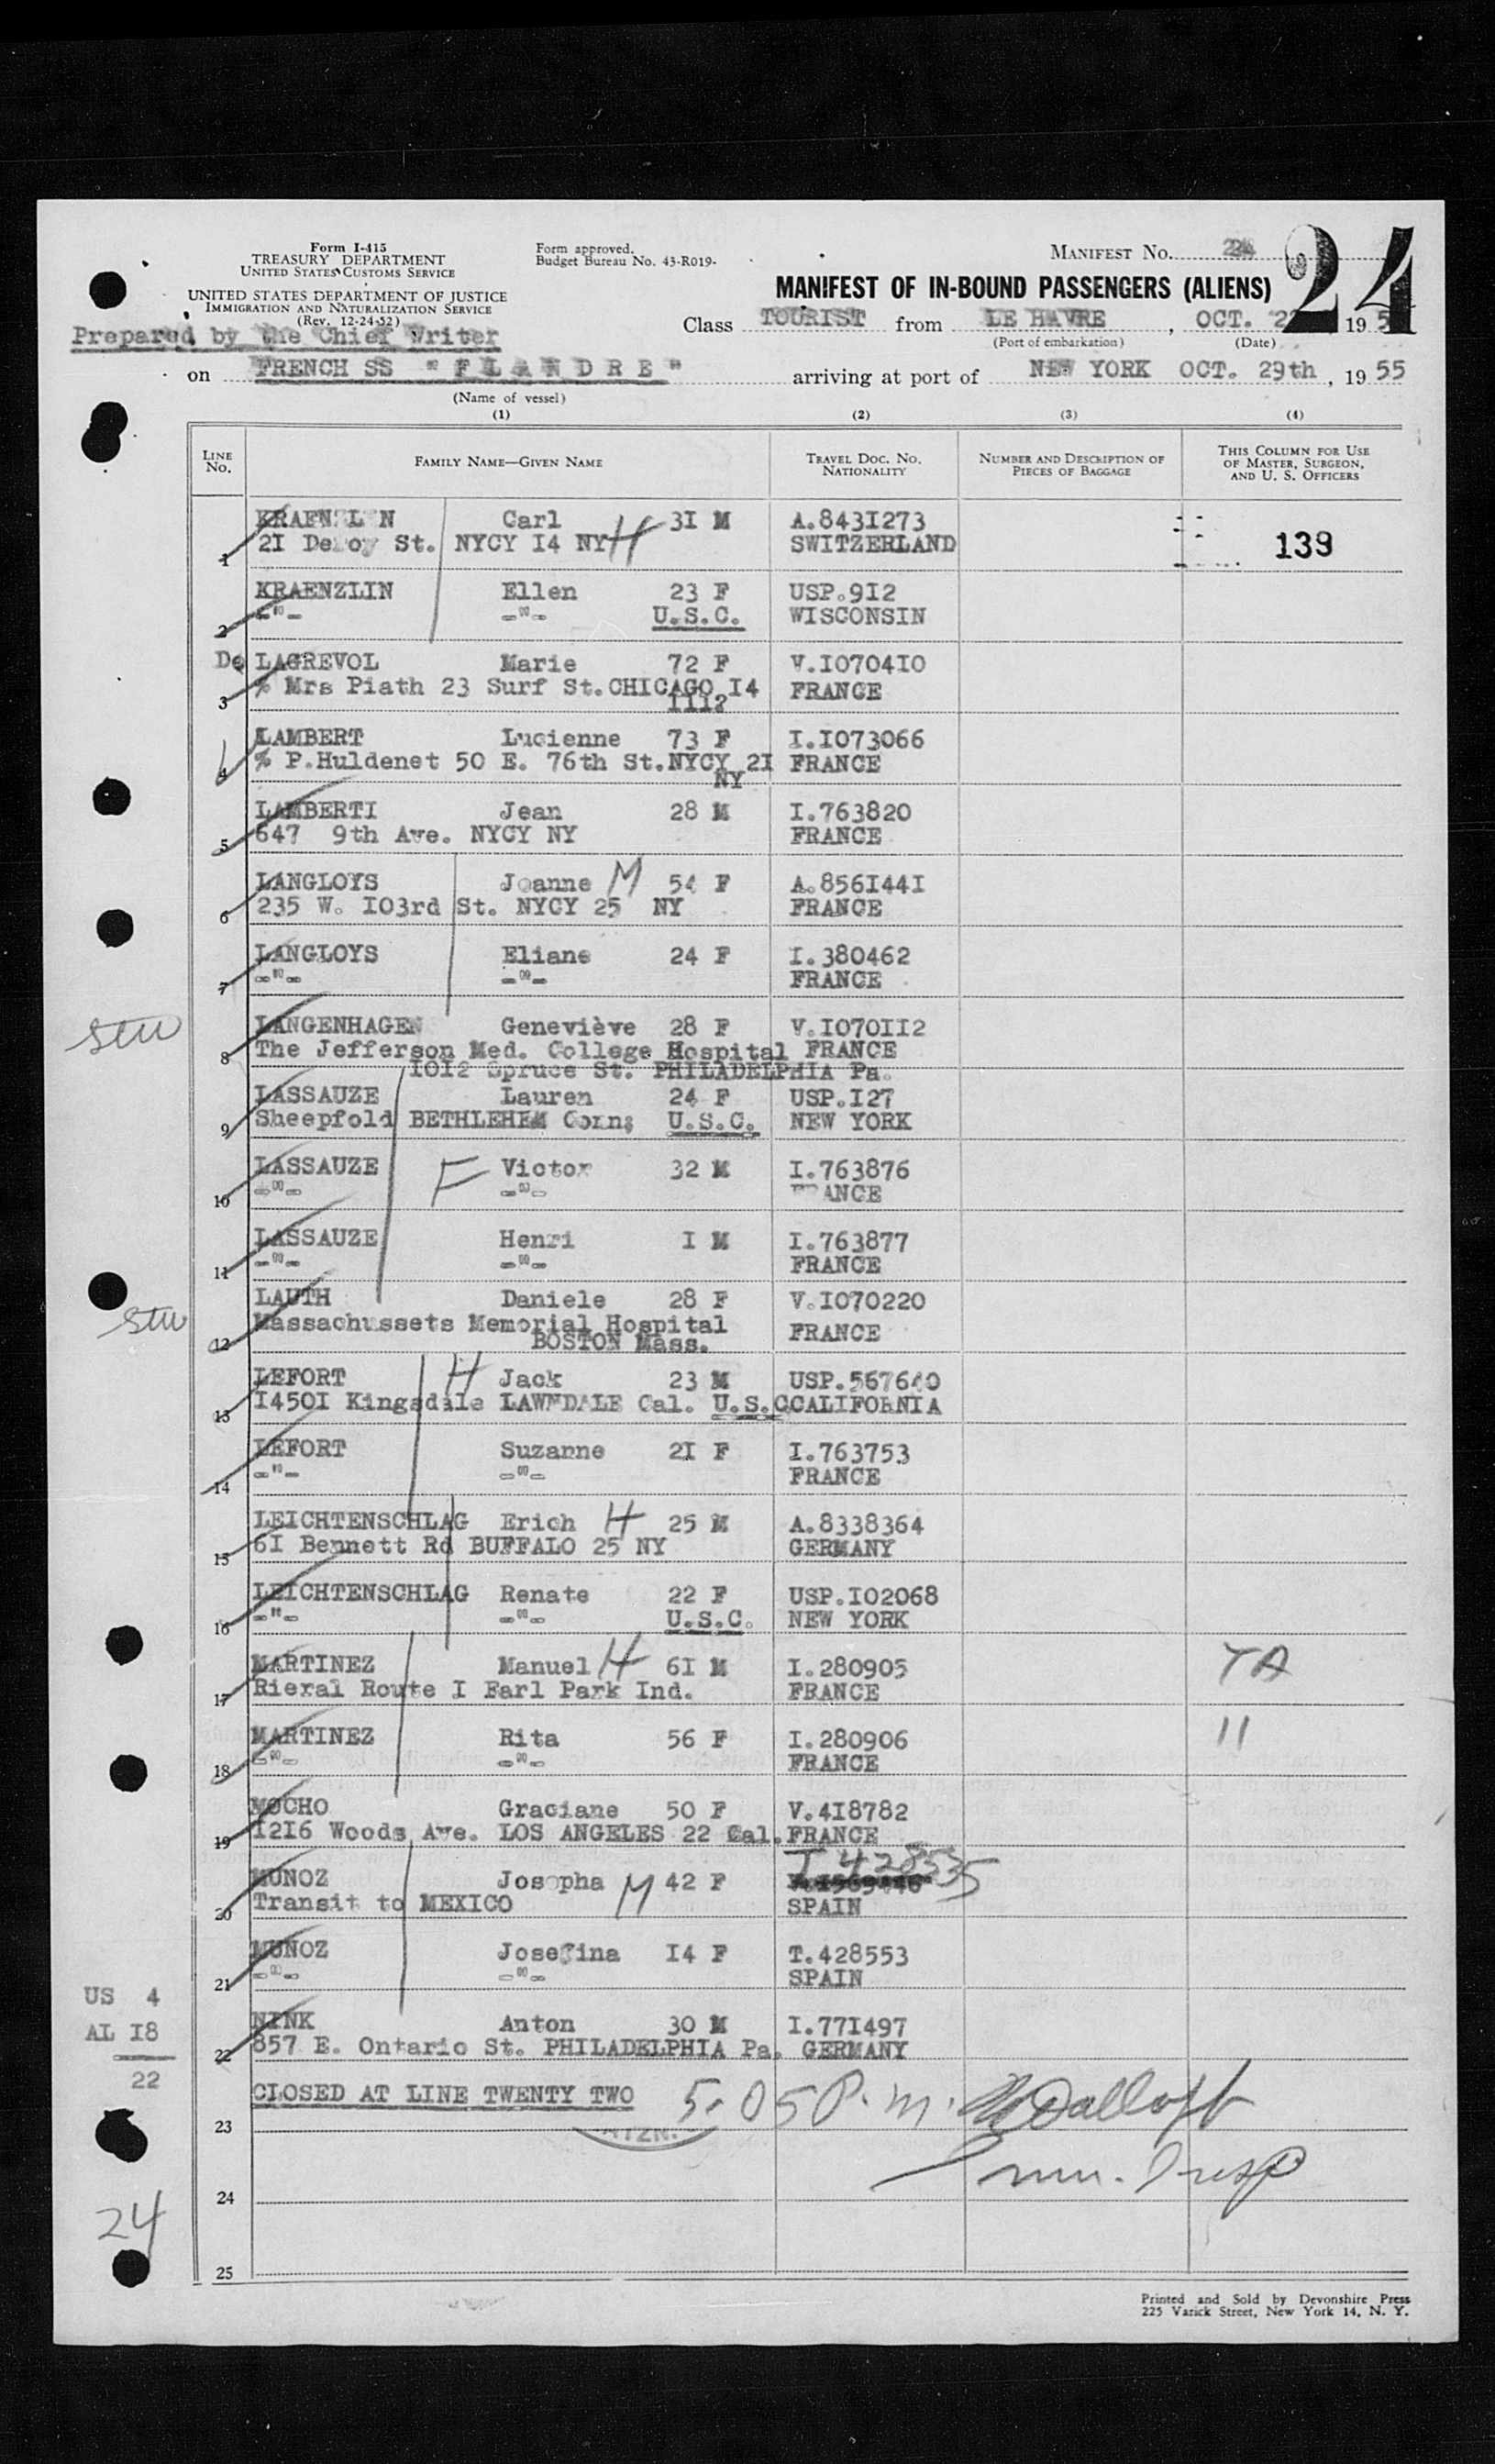 Form I-415
TREASURY DEPARTMENT
UNITED STATES CUSTOMS SERVICE
UNITED STATES DEPARTMENT OF JUSTICE
IMMIGRATION AND NATURALIZATION SERVICE
(Rev. 12-24-52)
Form approved.
Budget Bureau No. 43-R019-
MANIFEST No.
24
MANIFEST OF IN-BOUND PASSENGERS (ALIENS)
Prepared by the Chief Writer
Class TOURIST from LE HAVRE, OCT. 195
(Port of embarkation) (Date)
on FRENCH SS "FLANDRE" arriving at port of NEW YORK OCT. 29th, 1955
(Name of vessel)
(1) (2) (3) (4)
LINE No. FAMILY NAME—GIVEN NAME TRAVEL DOC. No. NATIONALITY NUMBER AND DESCRIPTION OF PIECES OF BAGGAGE THIS COLUMN FOR USE OF MASTER, SURGEON, AND U. S. OFFICERS
Carl H 3I M A.843I273 139
1 2I St. NYCY I4 NY SWITZERLAND
KRAENZLIN Ellen 23 F USP.9I2
2 -"- -"- U.S.C. WISCONSIN
De LAGREVOL Marie 72 F V.I0704I0
3 % Mrs Piath 23 Surf St. CHICAGO I4 FRANCE
1112
LAMBERT Lucienne 73 F I.I073066
4 % P.Huldenet 50 E. 76th St.NYCY 2I FRANCE
NY
LAMBERTI Jean 28 M I.763820
5 647 9th Ave. NYCY NY FRANCE
LANGLOYS Joanne M 54 F A.856I44I
6 235 W. I03rd St. NYCY 25 NY FRANCE
LANGLOYS Eliane 24 F I.380462
7 -"- -"- FRANCE
stw LANGENHAGEN Geneviève 28 F V.I070II2
8 The Jefferson Med. College Hospital FRANCE
I0I2 Spruce St. PHILADELPHIA Pa.
LASSAUZE Lauren 24 F USP.I27
9 Sheepfold BETHLEHEM Conn; U.S.C. NEW YORK
LASSAUZE F Victor 32 M I.763876
10 -"- -"- FRANCE
LASSAUZE Henri I M I.763877
11 -"- -"- FRANCE
stw LAUTH Daniele 28 F V.I070220
12 Massachussets Memorial Hospital FRANCE
BOSTON Mass.
LEFORT H Jack 23 M USP.567640
13 I450I Kingsdale LAWNDALE Cal. U.S.C. CALIFORNIA
LEFORT Suzanne 2I F I.763753
14 -"- -"- FRANCE
LEICHTENSCHLAG Erich H 25 M A.8338364
15 6I Bennett Rd BUFFALO 25 NY GERMANY
LEICHTENSCHLAG Renate 22 F USP.I02068
16 -"- -"- U.S.C. NEW YORK
MARTINEZ Manuel H 6I M I.280905 TA
17 Rieral Route I Earl Park Ind. FRANCE
MARTINEZ Rita 56 F I.280906 11
18 -"- -"- FRANCE
MOCHO Graciane 50 F V.4I8782
19 I2I6 Woods Ave. LOS ANGELES 22 Cal. FRANCE
MUNOZ Josepha M 42 F T 428535
20 Transit to MEXICO SPAIN
MUNOZ Josefina I4 F T.428553
21 -"- -"- SPAIN
NINK Anton 30 M I.77I497
22 857 E. Ontario St. PHILADELPHIA Pa. GERMANY
US 4
AL I8
22
CLOSED AT LINE TWENTY TWO 5.05 P.m.
23
Imm. Insp
24
24
25
Printed and Sold by Devonshire Press
225 Varick Street, New York 14, N. Y.